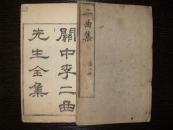 二曲集
關中李二曲
先生全集